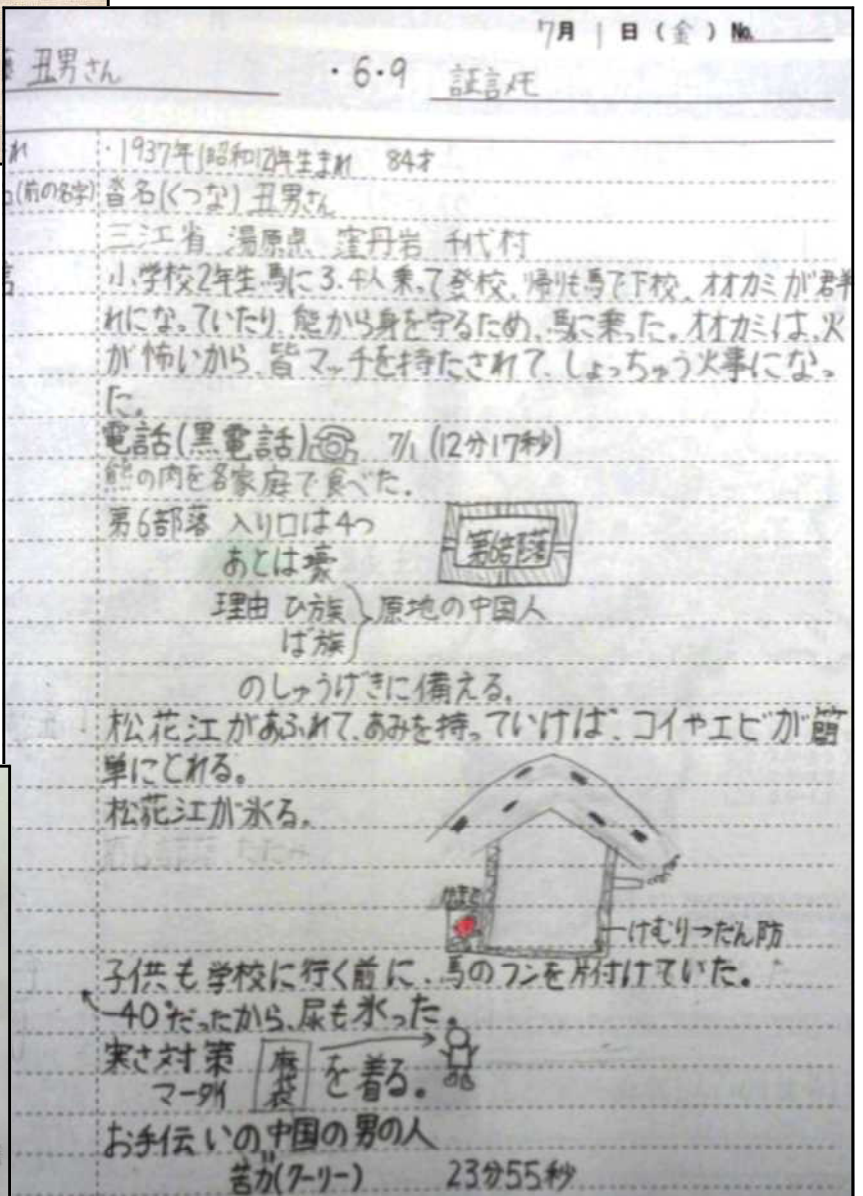 7月1日(金) No.
丑男さん ・6・9 証言メモ
・1937年(昭和12年生まれ 84才
(前の名字) 沓名(くつな)丑男さん
三江省 湯原県 窪丹岩 千代村
小学校2年生、馬に3.4人乗って登校、帰りも馬で下校、オオカミが群
れになっていたり、熊から身を守るため、馬に乗った。オオカミは、火
が怖いから、皆マッチを持たされて、しょっちゅう火事になっ
た。
電話(黒電話) 7/1 (12分17秒)
熊の肉を各家庭で食べた。
第6部落 入り口は4つ
第6部落
あとは壕
理由 ひ族
ば族
原地の中国人
のしゅうげきに備える。
松花江があふれて、あみを持っていけば、コイやエビが簡
単にとれる。
松花江が氷る。
かまど
けむり→だん防
子供も学校に行く前に、馬のフンを片付けていた。
-40°だったから、尿も氷った。
寒さ対策
マータイ 麻袋 を着る。
お手伝いの中国の男の人
苦力(クーリー) 23分55秒